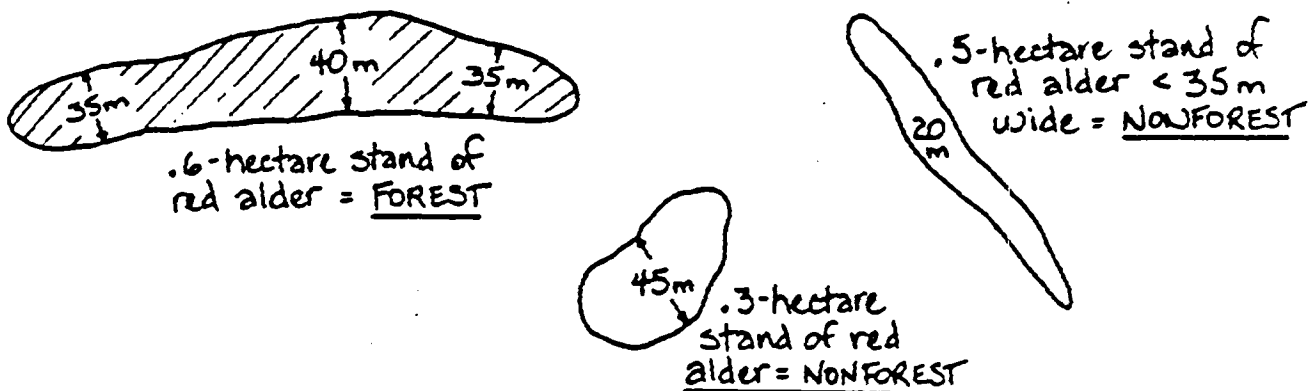 35m
40m
35m
.6-hectare stand of
red alder = FOREST
.5-hectare stand of
red alder < 35m
wide = NONFOREST
20
m
45m
.3-hectare
stand of red
alder = NONFOREST